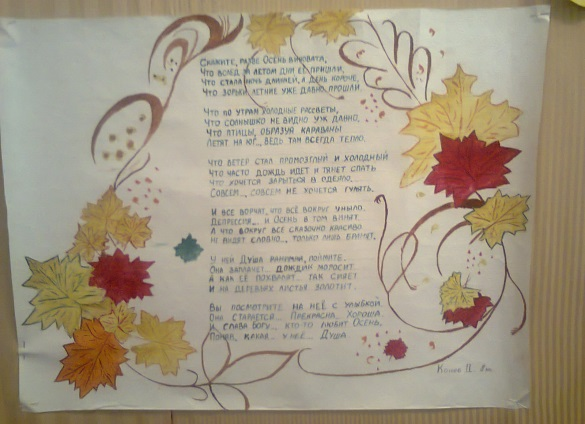 Скажите, разве Осень виновата,
Что вслед за летом дни её пришли,
Что стала ночь длинней, а день короче,
Что зорьки летние уже давно прошли.
Что по утрам холодные рассветы,
Что солнышко не видно уж давно,
Что птицы, образуя караваны
Летят на юг... ведь там всегда тепло.
Что ветер стал промозглый и холодный
Что часто дождь идёт и тянет спать
Что хочется зарыться в одеяло...
Совсем... совсем не хочется гулять.
И все ворчат, что всё вокруг уныло.
Депрессия... и Осень в том винят.
А что вокруг всё сказочно красиво
Не видят словно... только лишь бранят.
У ней Душа ранимая, поймите.
Она заплачет... дождик моросит.
А как её похвалят... так сияет
И на деревьях листья золотит.
Вы посмотрите на неё с улыбкой.
Она старается... Прекрасна, хороша
И слава Богу... кто-то любит Осень.
Поняв, какая... у неё... Душа